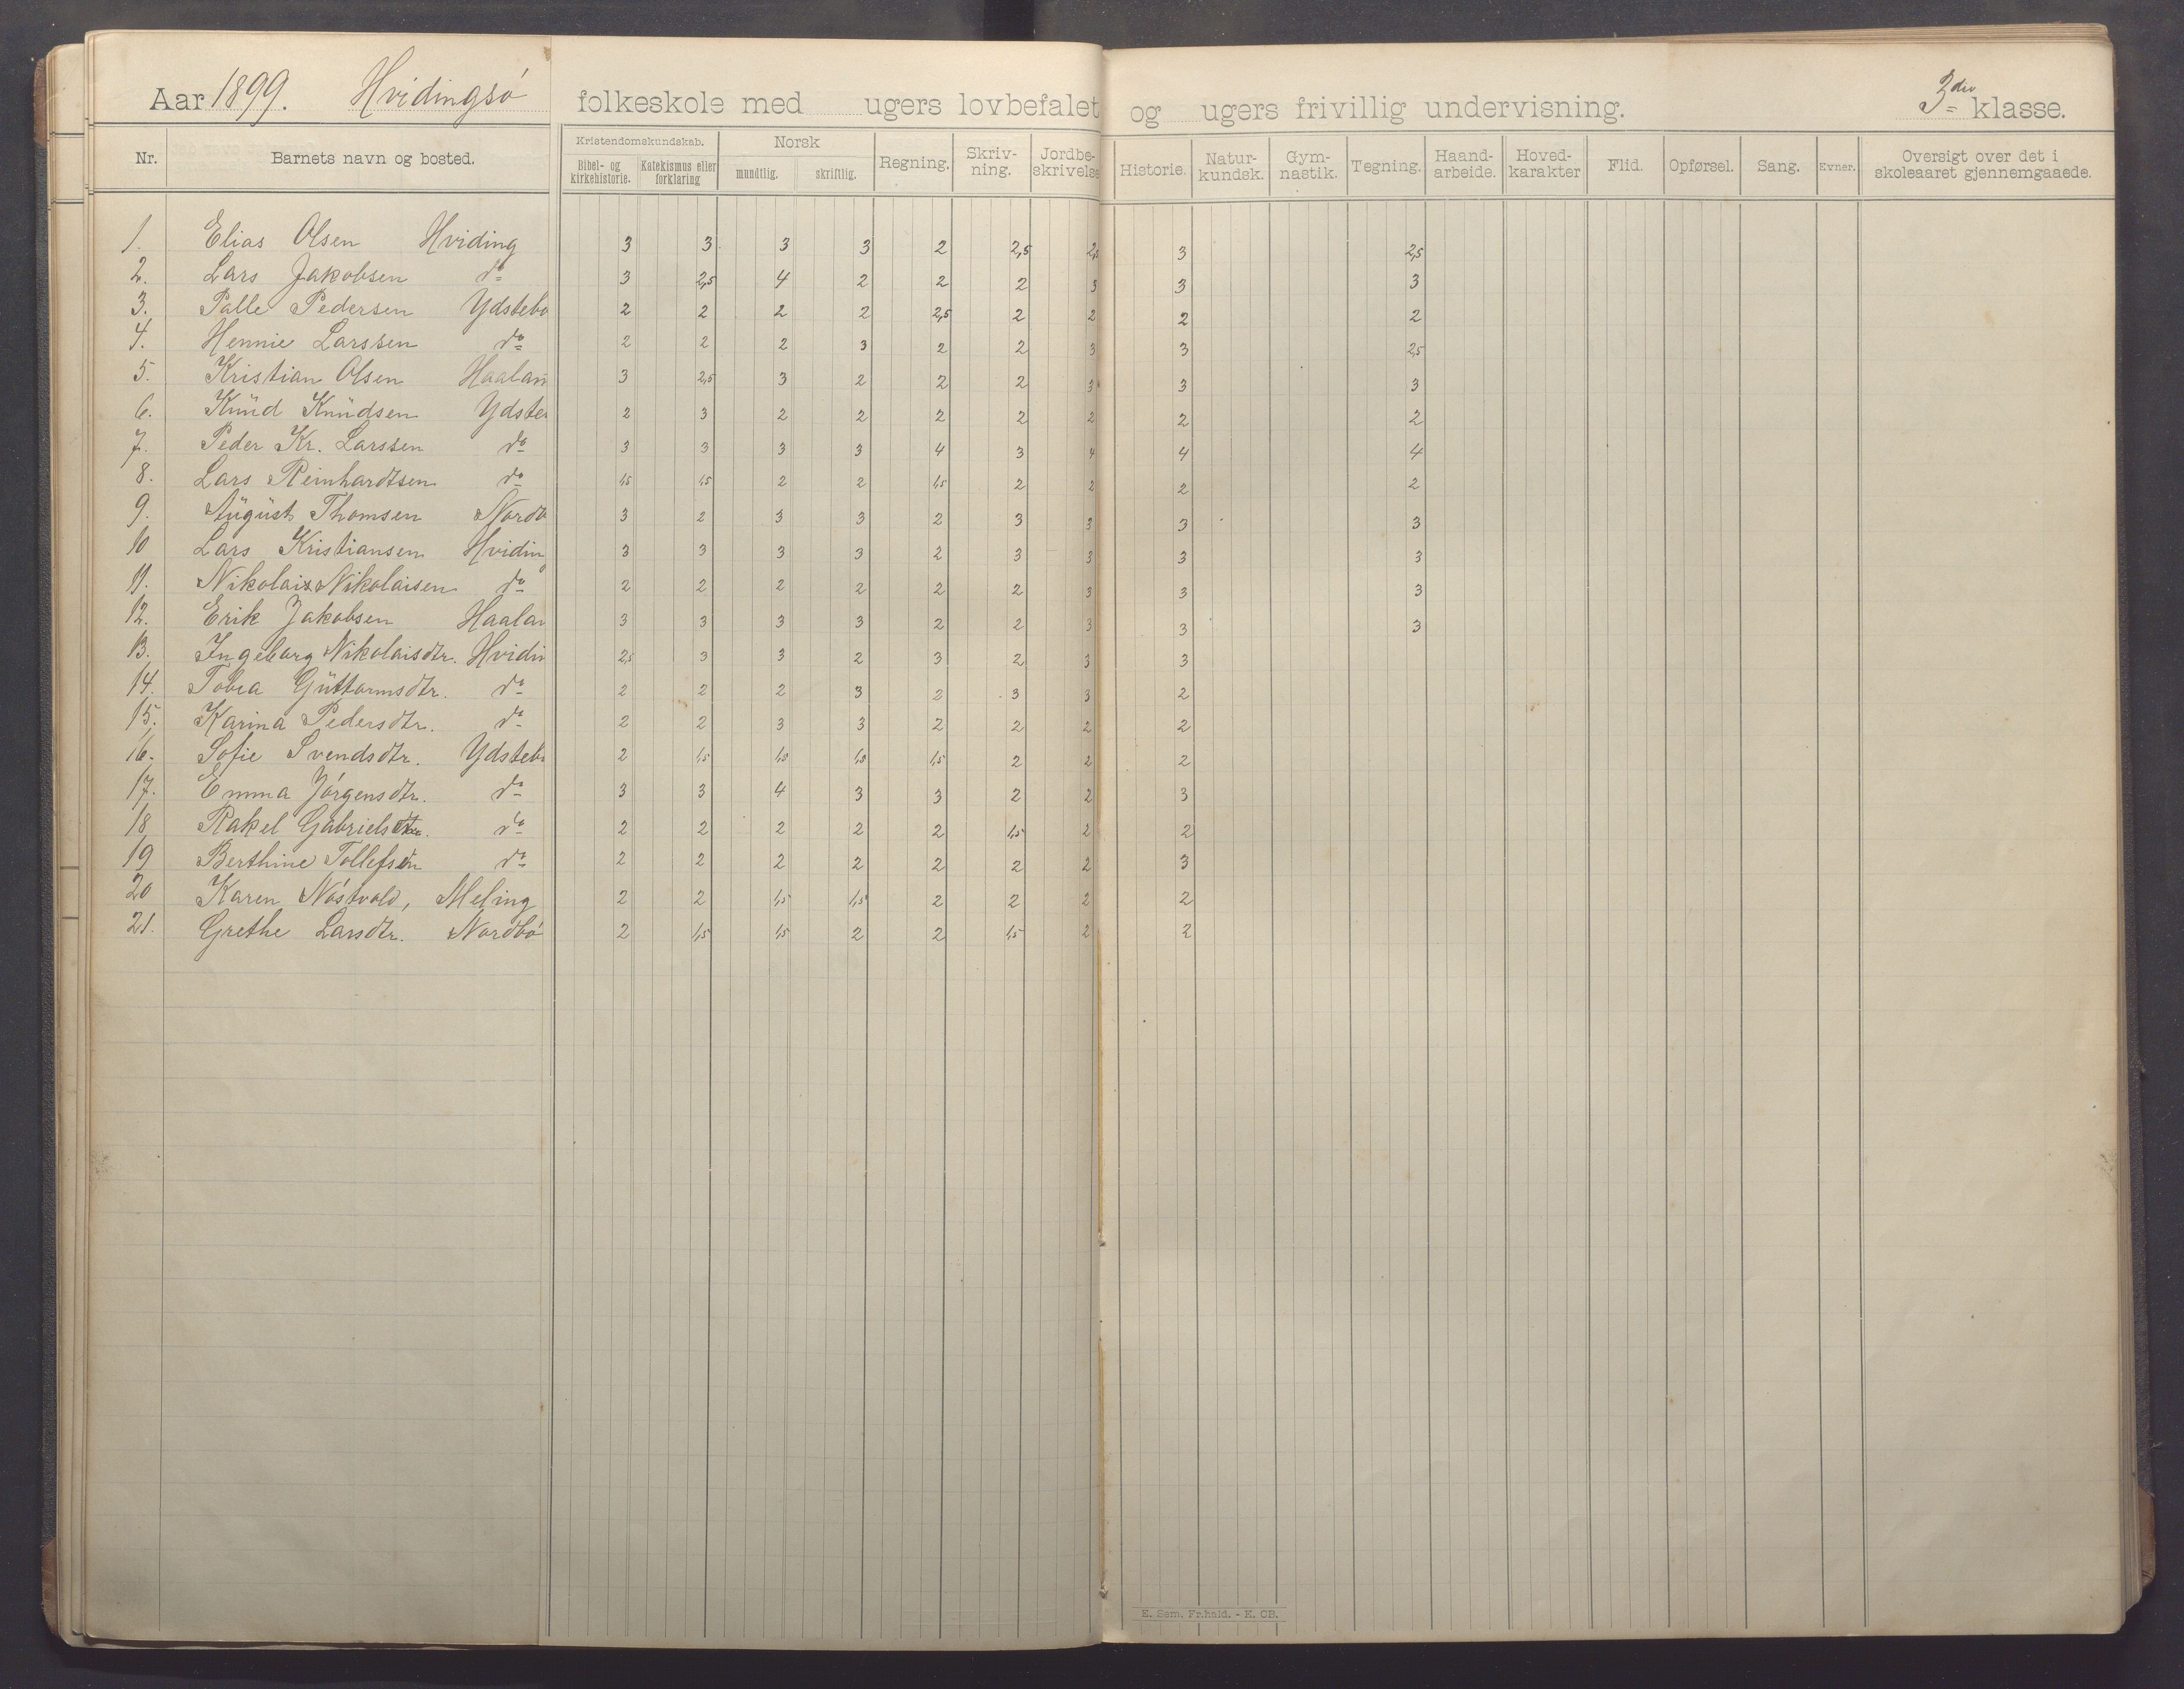 Aar 1899. Hvidingsö folkeskole med ugers lovbefalet og ugers frivillig undervisning. 3die klasse.
Nr. Barnets navn og bosted. Kristendomskundskab. Bibel- og kirkehistorie. Katekismus eller forklaring Norsk mundtlig. skriftlig. Regning. Skriv-ning. Jordbe-skrivelse Historie. Natur-kundsk. Gym-nastik. Tegning. Haand-arbeide. Hoved-karakter Flid. Opførsel. Sang. Evner. Oversigt over det i skoleaaret gjennemgaaede.
1. Elias Olsen Hviding 3 3 3 3 2 2,5 2,5 3 2,5
2. Lars Jakobsen do 3 2,5 4 2 2 2 3 3 3
3. Palle Pedersen Ydstebo 2 2 2 2 2,5 2 2 2 2
4. Hennie Larssen do 2 2 2 3 2 2 3 3 2,5
5. Kristian Olsen Haalan 3 2,5 3 2 2 2 3 3 3
6. Knüd Knüdsen Ydste 2 3 2 2 2 2 2 2 2
7. Peder Kr. Larssen do 3 3 3 3 4 3 4 4 4
8. Lars Reinhardtsen do 1,5 1,5 2 2 1,5 2 2 2 2
9. Aügüst Thomsen Nordb 3 2 3 3 2 3 3 3 3
10 Lars Kristiansen Hviding 3 3 3 3 2 3 3 3 3
11. Nikolai Nikolaisen do 2 2 2 2 2 2 3 3 3
12. Erik Jakobsen Haalan 3 3 3 3 2 2 3 3 3
13. Ingeborg Nikolaisdtr. Hvidin 2,5 3 3 2 3 2 3 3
14. Tobea Güttormsdtr. do 2 2 2 3 2 3 3 2
15. Karina Pedersdtr. do 2 2 3 3 2 2 2 2
16. Sofie Svendsdtr. Ydstebö 2 1,5 1,5 1,5 1,5 2 2 2
17. Emma Jörgensdtr. do 3 3 4 3 3 2 2 3
18 Rakel Gabrielsdtr. do 2 2 2 2 2 1,5 2 2
19 Berthine Tollefsen do 2 2 2 2 2 2 2 3
20 Karen Nöstvold, Meling 2 2 1,5 1,5 2 2 2 2
21. Grethe Larsdtr. Nordbö 2 1,5 1,5 2 2 1,5 2 2
E. Sem. Fr.hald. - E. OB.